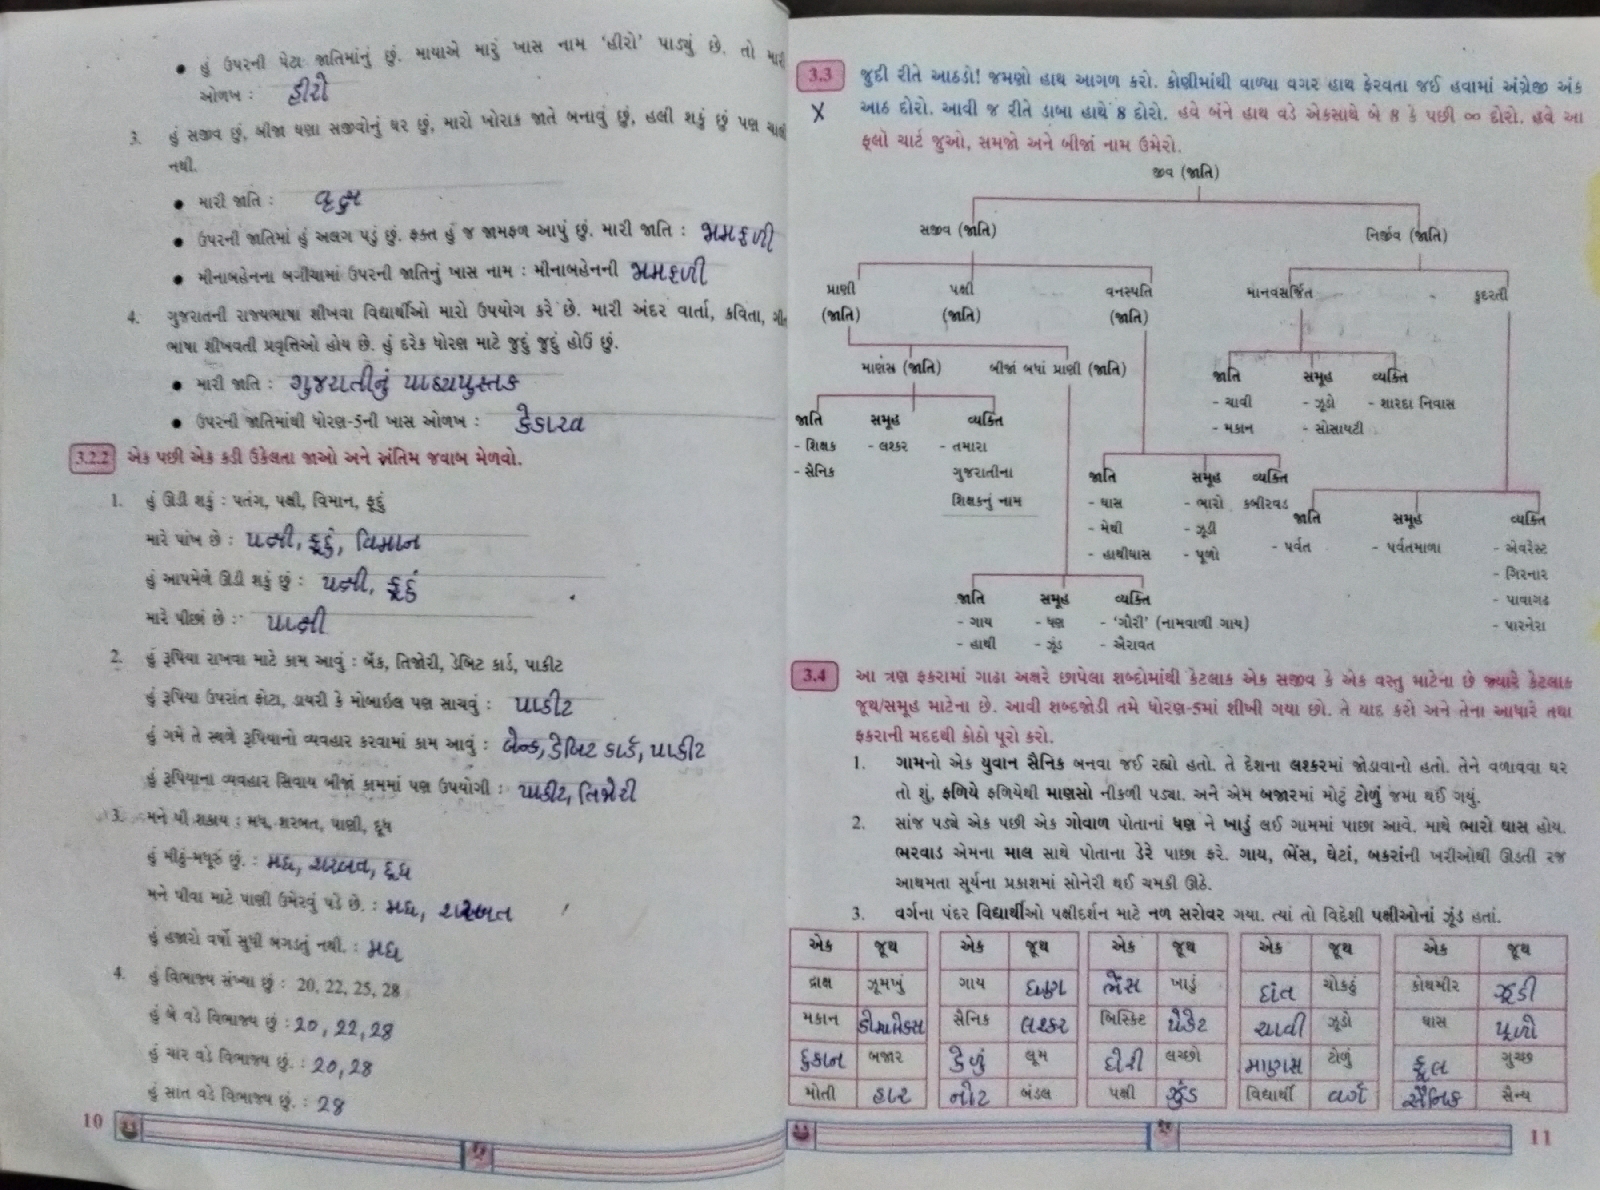 • હું ઉપરની પેટા જાતિમાંનું છું. માયાએ મારું ખાસ નામ 'હીરો' પાડ્યું છે. તો મારી
ઓળખ : હીરો
3. હું સજીવ છું, બીજા ઘણા સજીવોનું ઘર છું, મારો ખોરાક જાતે બનાવું છું, હલી શકું છું પણ ચાલી
નથી.
• મારી જાતિ : વૃક્ષ
• ઉપરની જાતિમાં હું અલગ પડું છું. ફક્ત હું જ જામફળ આપું છું. મારી જાતિ : જામફળી
• મીનાબહેનના બગીચામાં ઉપરની જાતિનું ખાસ નામ : મીનાબહેનની જામફળી
4. ગુજરાતની રાજ્યભાષા શીખવા વિદ્યાર્થીઓ મારો ઉપયોગ કરે છે. મારી અંદર વાર્તા, કવિતા, ગીત
ભાષા શીખવતી પ્રવૃત્તિઓ હોય છે. હું દરેક ધોરણ માટે જુદું જુદું હોઉં છું.
• મારી જાતિ : ગુજરાતીનું પાઠ્યપુસ્તક
• ઉપરની જાતિમાંથી ધોરણ-5ની ખાસ ઓળખ : કેકારવ
3.2.2 એક પછી એક કડી ઉકેલતા જાઓ અને અંતિમ જવાબ મેળવો.
1. હું ઊડી શકું : પતંગ, પક્ષી, વિમાન, ફૂદું
મારે પાંખ છે : પક્ષી, ફૂદું, વિમાન
હું આપમેળે ઊડી શકું છું : પક્ષી, ફૂદું
મારે પીંછાં છે : પક્ષી
2. હું રૂપિયા રાખવા માટે કામ આવું : બેંક, તિજોરી, ડેબિટ કાર્ડ, પાકીટ
હું રૂપિયા ઉપરાંત ફોટા, ડાયરી કે મોબાઇલ પણ સાચવું : પાકીટ
હું ગમે તે સ્થળે રૂપિયાનો વ્યવહાર કરવામાં કામ આવું : બેન્ક, ડેબિટ કાર્ડ, પાકીટ
હું રૂપિયાના વ્યવહાર સિવાય બીજાં કામમાં પણ ઉપયોગી : પાકીટ, તિજોરી
3. મને પી શકાય : મધ, શરબત, પાણી, દૂધ
હું મીઠું-મધૂરું છું. : મધ, શરબત, દૂધ
મને પીવા માટે પાણી ઉમેરવું પડે છે. : મધ, શરબત
હું હજારો વર્ષો સુધી બગડતું નથી. : મધ
4. હું વિભાજ્ય સંખ્યા છું : 20, 22, 25, 28
હું બે વડે વિભાજ્ય છું : 20, 22, 28
હું ચાર વડે વિભાજ્ય છું. : 20, 28
હું સાત વડે વિભાજ્ય છું. : 28
10
3.3 જુદી રીતે આઠડો! જમણો હાથ આગળ કરો. કોણીમાંથી વાળ્યા વગર હાથ ફેરવતા જઈ હવામાં અંગ્રેજી અંક
X આઠ દોરો. આવી જ રીતે ડાબા હાથે 8 દોરો. હવે બંને હાથ વડે એકસાથે બે 8 કે પછી ∞ દોરો. હવે આ
ફ્લૉ ચાર્ટ જુઓ, સમજો અને બીજાં નામ ઉમેરો.
જીવ (જાતિ)
સજીવ (જાતિ) નિર્જીવ (જાતિ)
પ્રાણી પક્ષી વનસ્પતિ માનવસર્જિત કુદરતી
(જાતિ) (જાતિ) (જાતિ)
માણસ (જાતિ) બીજાં બધાં પ્રાણી (જાતિ) જાતિ સમૂહ વ્યક્તિ
- ચાવી - ઝૂડો - શારદા નિવાસ
- મકાન - સોસાયટી
જાતિ સમૂહ વ્યક્તિ
- શિક્ષક - લશ્કર - તમારા
- સૈનિક ગુજરાતીના
શિક્ષકનું નામ
જાતિ સમૂહ વ્યક્તિ
- ઘાસ - ભારો કબીરવડ
- મેથી - ઝૂડી
- હાથીઘાસ - પૂળો
જાતિ સમૂહ વ્યક્તિ
- પર્વત - પર્વતમાળા - એવરેસ્ટ
- ગિરનાર
- પાવાગઢ
- પારનેરા
જાતિ સમૂહ વ્યક્તિ
- ગાય - ધણ - 'ગૌરી' (નામવાળી ગાય)
- હાથી - ઝુંડ - ઐરાવત
3.4 આ ત્રણ ફકરામાં ગાઢા અક્ષરે છાપેલા શબ્દોમાંથી કેટલાક એક સજીવ કે એક વસ્તુ માટેના છે જ્યારે કેટલાક
જૂથ/સમૂહ માટેના છે. આવી શબ્દજોડી તમે ધોરણ-5માં શીખી ગયા છો. તે યાદ કરો અને તેના આધારે તથા
ફકરાની મદદથી કોઠો પૂરો કરો.
1. ગામનો એક યુવાન સૈનિક બનવા જઈ રહ્યો હતો. તે દેશના લશ્કરમાં જોડાવાનો હતો. તેને વળાવવા ઘર
તો શું, ફળિયે ફળિયેથી માણસો નીકળી પડ્યા. અને એમ બજારમાં મોટું ટોળું જમા થઈ ગયું.
2. સાંજ પડ્યે એક પછી એક ગોવાળ પોતાનાં ધણ ને ખાડું લઈ ગામમાં પાછા આવે. માથે ભારો ઘાસ હોય.
ભરવાડ એમના માલ સાથે પોતાના ડેરે પાછા ફરે. ગાય, ભેંસ, ઘેટાં, બકરાંની ખરીઓથી ઊડતી રજ
આથમતા સૂર્યના પ્રકાશમાં સોનેરી થઈ ચમકી ઊઠે.
3. વર્ગના પંદર વિદ્યાર્થીઓ પક્ષીદર્શન માટે નળ સરોવર ગયા. ત્યાં તો વિદેશી પક્ષીઓનાં ઝૂંડ હતાં.
એક જૂથ એક જૂથ એક જૂથ એક જૂથ એક જૂથ
દ્રાક્ષ ઝૂમખું ગાય ધણ ભેંસ ખાડું દાંત ચોકઠું કોથમીર ઝૂડી
મકાન કોમ્પલેક્સ સૈનિક લશ્કર બિસ્કિટ પેકેટ ચાવી ઝૂડો ઘાસ પૂળો
દુકાન બજાર કેળું લૂમ દોરી લચ્છો માણસ ટોળું ફૂલ ગુચ્છ
મોતી હાર નોટ બંડલ પક્ષી ઝુંડ વિદ્યાર્થી વર્ગ સૈનિક સૈન્ય
11